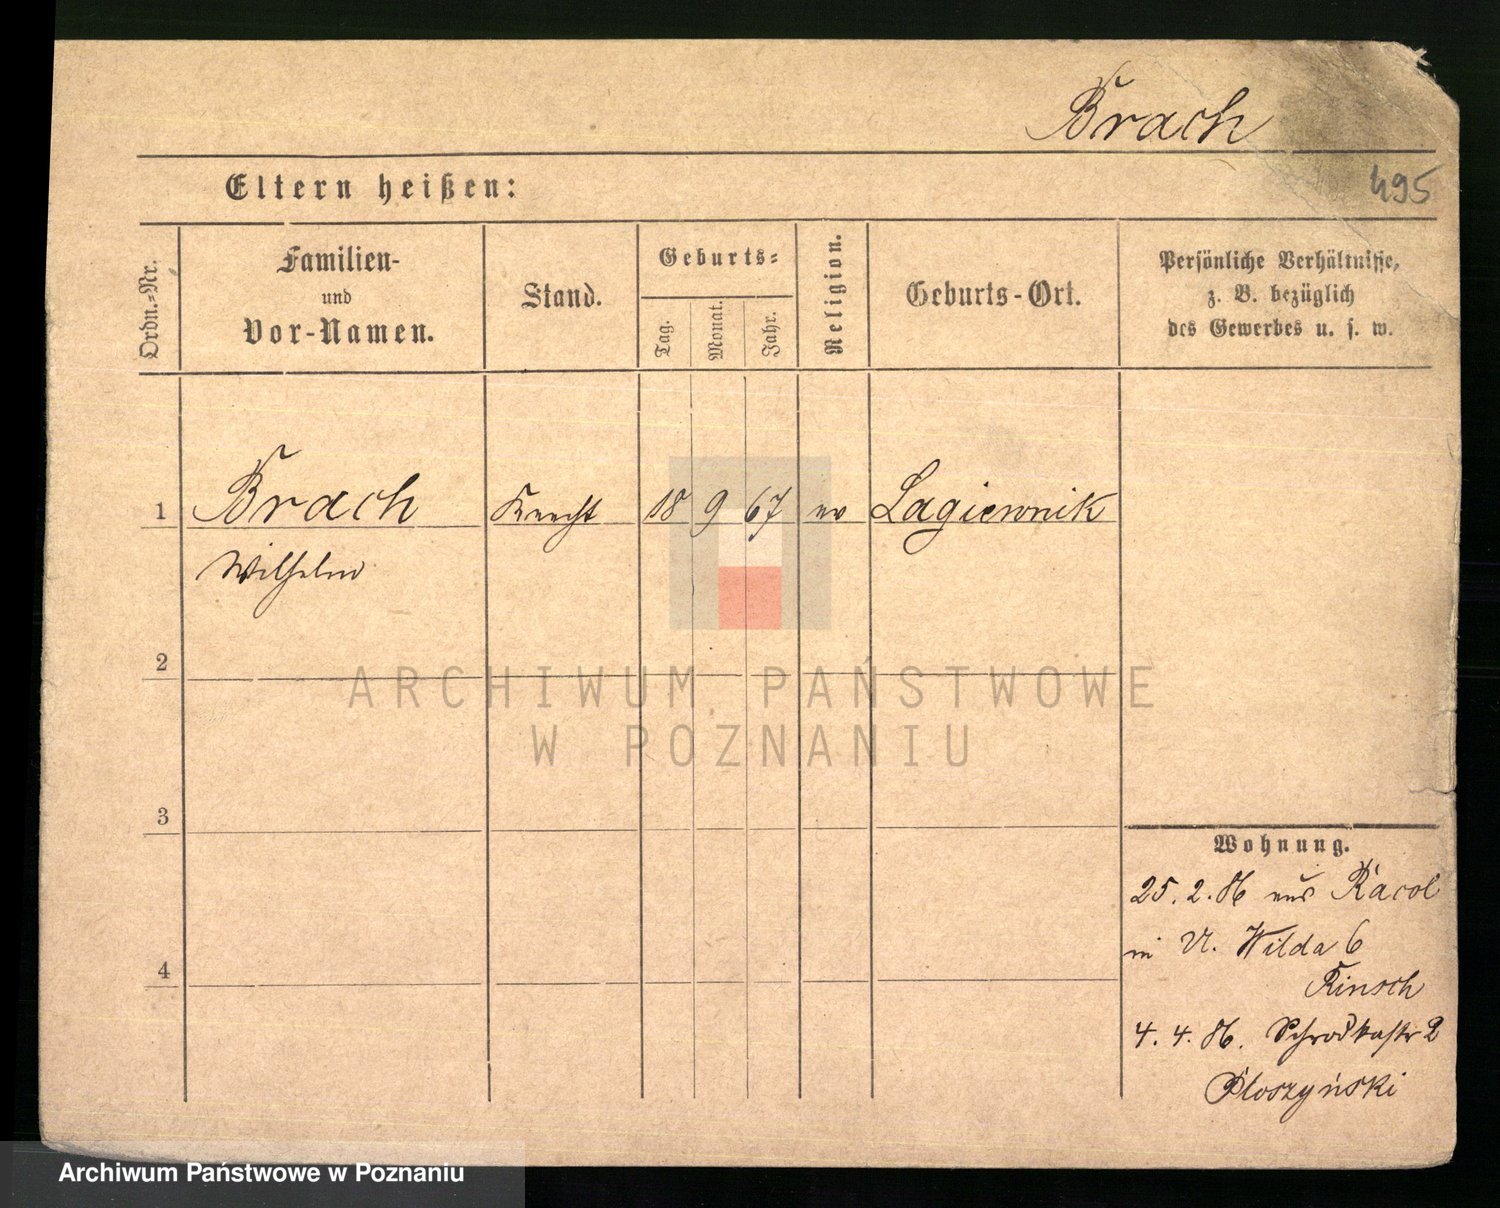 Brach
Eltern heißen:
495
Ordn.-Nr.
Familien-
und
Vor-Namen.
Stand.
Geburts-
Tag.
Monat.
Jahr.
Religion.
Geburts-Ort.
Persönliche Verhältnisse,
z. B. bezüglich
des Gewerbes u. s. w.
1 Brach Knecht 18 9 67 ev Lagiewnik
Wilhelm
2
ARCHIWUM PAŃSTWOWE
W POZNANIU
3
Wohnung.
25. 2. 86 aus Racot
in U. Wilda 6
4
Rinsch
4. 4. 86. Schrodkastr 2
Ploszyński
Archiwum Państwowe w Poznaniu